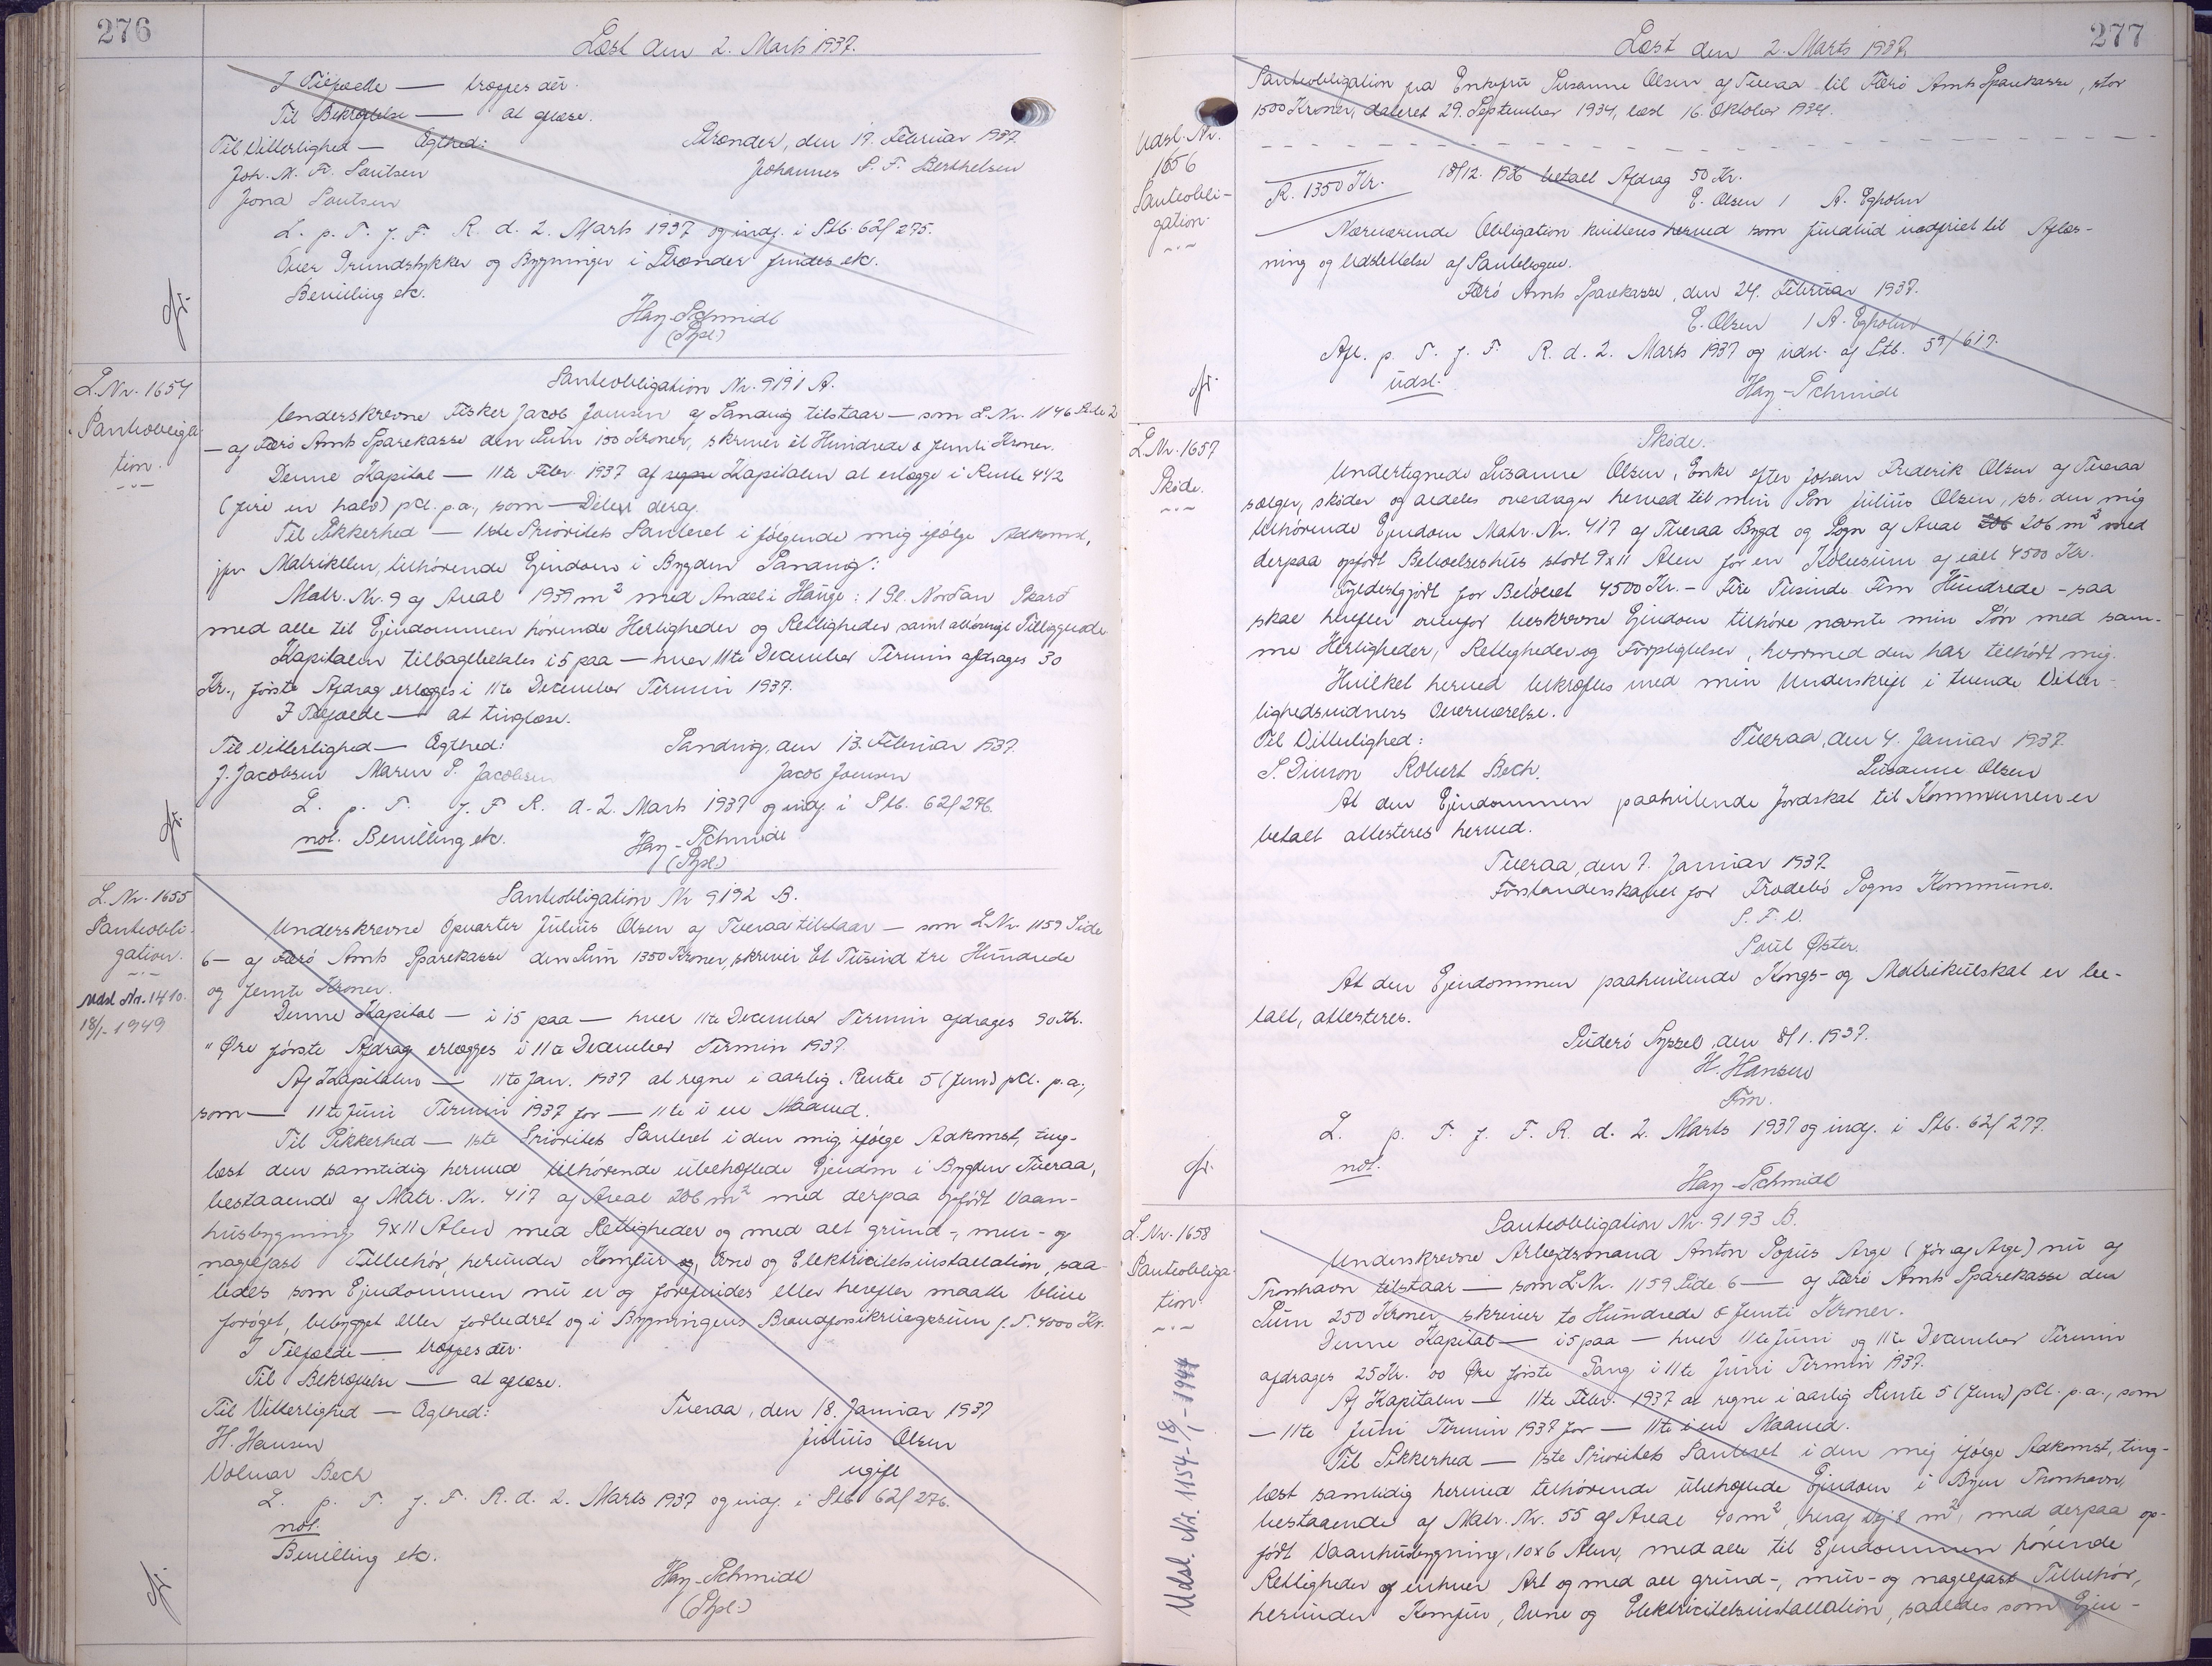 276
Læst den 2. Marts 1937.
I Tilfælde — træpes der.
Til Bekræftelse — at glæse.
Til Vitterlighed — Ægthed:
Strender, den 19. Februar 1937.
Joh. M. Fr. Poulsen
Johannes S. F. Berthelsen
Jona Poulsen
L. p. T. f. F. R. d. 2. Marts 1937 og indf. i Ptb. 62/275.
Over Grundstykker og Bygninger i Strender findes etc.
Bevilling etc.
Hay-Schmidt
(Spl.)
L. Nr. 1654
Panteobliga-
tion.
Panteobligation Nr. 9191 A.
Underskrevne Fisker Jacob Joensen af Sandvig tilstaar — som L. Nr. 1146 Side 2
— af Færø Amts Sparekasse den Sum 150 Kroner, skriver et Hundrede & femti Kroner.
Denne Kapital — 11te Febr. 1937 af Kapitalen at erlægge i Rente 4 1/2
(fire en halv) pCt. p.a., som — Delest deraf.
Til Sikkerhed — 1ste Prioritets Panteret i følgende mig ifølge Adkomst,
jfr. Matriklen, tilhørende Ejendom i Bygden Sandvig:
Matr. Nr. 9 af Areal 1939 m² med Andel i Hauge: 1 Gl. Nordan Skard
med alle til Ejendommen hørende Herligheder og Rettigheder samt
Kapitalen tilbagebetales i 5 paa — hver 11te December Termin afdrages 30
Kr., første Afdrag erlægges i 11te December Termin 1937.
I Tilfælde — at tinglæse.
Til Vitterlighed — Ægthed:
Sandvig, den 13. Februar 1937.
J. Jacobsen Maren P. Jacobsen
Jacob Joensen
L. p. T. f. F. R. d. 2. Marts 1937 og indf. i Ptb. 62/276.
not. Bevilling etc.
Hay-Schmidt
(Spl.)
L. Nr. 1655
Panteobli-
gation.
Udsl. Nr. 1410.
18/1-1949
Panteobligation Nr. 9192 B.
Underskrevne Opvarter Julius Olsen af Tveraa tilstaar — som L. Nr. 1159 Side
6 — af Færø Amts Sparekasse den Sum 1350 Kroner, skriver Et Tusind tre Hundrede
og femti Kroner.
Denne Kapital — i 15 paa — hver 11te December Termin afdrages 90 Kr.
" Øre første Afdrag erlægges i 11te December Termin 1937
Af Kapitalen — 11te Jan. 1937 at regne i aarlig Rente 5 (fem) pCt. p.a.,
som — 11te Juni Termin 1937 for — 11te i en Maaned.
Til Sikkerhed — 1ste Prioritets Panteret i den mig ifølge Adkomst, ting-
læst den samtidig hermed tilhørende ubehæftede Ejendom i Bygden Tveraa,
bestaaende af Matr. Nr. 417 af Areal 206 m² med derpaa opført Vaan-
husbygning 9x11 Alen med Rettigheder og med alt grund-, mur- og
nagelfast Tilbehør, herunder Komfur og, Ovne og Elektricitetsinstallation, saa-
ledes som Ejendommen nu er og forefindes eller herefter maatte blive
forøget, bebygget eller forbedret og i Bygningens Brandforsikringssum p. T. 4000 Kr.
I Tilfælde — træpes der.
Til Bekræftelse — at glæse.
Til Vitterlighed — Ægthed:
Tveraa, den 18. Januar 1937
H. Hansen
Julius Olsen
Volmar Bech
ugift
L. p. T. f. F. R. d. 2. Marts 1937 og indf. i Ptb. 62/276.
not.
Bevilling etc.
Hay-Schmidt
(Spl.)
277
Læst den 2. Marts 1937.
Udsl. Nr.
1656
Panteobli-
gation.
Panteobligation fra Enkefru Susanne Olsen af Tveraa til Færø Amts Sparekasse, stor
1500 Kroner, dateret 29. September 1934, læst 16. Oktober 1934.
R. 1350 Kr.
18/12. 1936 betalt Afdrag 50 Kr.
E. Olsen / A. Egholm
Nærværende Obligation kvitteres herved som fuldtud indfriet til Aflæs-
ning og Udslettelse af Pantebogen.
Færø Amts Sparekasse, den 24. Februar 1937.
E. Olsen / A. Egholm
Afl. p. T. f. F. R. d. 2. Marts 1937 og udsl. af Ptb. 59/617.
udsl.
Hay-Schmidt
L. Nr. 1657
Skøde.
Skøde.
Undertegnede Susanne Olsen, Enke efter Johan Frederik Olsen af Tveraa
sælger, skøder og aldeles overdrager herved til min Søn Julius Olsen, ss. den mig
tilhørende Ejendom Matr. Nr. 417 af Tveraa Bygd og Sogn af Areal 206 206 m² med
derpaa opført Beboelseshus stort 9x11 Alen for en Købesum af ialt 4500 Kr.
Fyldestgjort for Beløbet 4500 Kr. - Fire Tusinde Fem Hundrede - saa
skal herefter ovenfor beskrevne Ejendom tilhøre nævnte min Søn med sam-
me Herligheder, Rettigheder og Forpligtelser, hvormed den har tilhørt mig.
Hvilket herved bekræftes med min Underskrift i tvende Vitter-
lighedsvidners Overværelse.
Til Vitterlighed:
Tveraa, den 4. Januar 1937.
S. Dimon Robert Bech.
Susanne Olsen
At den Ejendommen paahvilende Jordskat til Kommunen er
betalt attesteres herved.
Tveraa, den 7. Januar 1937.
Forstanderskabet for Frodebø Sogns Kommune.
S. F. V.
Poul Øster.
At den Ejendommen paahvilende Kongs- og Matrikulskat er be-
talt, attesteres.
Suderø Syssel, den 8/1. 1937.
H. Hansen
Fm.
L. p. T. f. F. R. d. 2. Marts 1937 og indf. i Ptb. 62/277.
not.
Hay-Schmidt
L. Nr. 1658
Panteobliga-
tion
Udsl. Nr. 1154 - 18/1 - 1944
Panteobligation Nr. 9193 B.
Underskrevne Arbejdsmand Anton Sofus Arge (før af Arge) nu af
Thorshavn tilstaar — som L. Nr. 1159 Side 6 — af Færø Amts Sparekasse den
Sum 250 Kroner, skriver to Hundrede & femti Kroner.
Denne Kapital — i 5 paa — hver 11te Juni og 11te December Termin
afdrages 25 Kr. 00 Øre første Gang i 11te Juni Termin 1937.
Af Kapitalen — 11te Febr. 1937 at regne i aarlig Rente 5 (fem) pCt. p.a., som
— 11te Juni Termin 1937 for — 11te i en Maaned.
Til Sikkerhed — 1ste Prioritets Panteret i den mig ifølge Adkomst, ting-
læst samtidig hermed tilhørende ubehæftede Ejendom i Byen Thorshavn,
bestaaende af Matr. Nr. 55 af Areal 90 m², heraf Vej 8 m², med derpaa op-
ført Vaanhusbygning, 10x6 Alen, med alle til Ejendommen hørende
Rettigheder af enhver Art og med alt grund-, mur- og nagelfast Tilbehør,
herunder Komfur, Ovne og Elektricitetsinstallation, saaledes som Ejen-